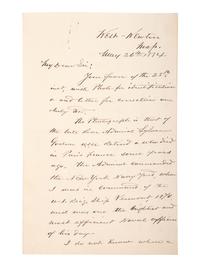 West-Newton
Mass.
May 26th, 1894.
My Dear Sir;
Your favor of the 25th
inst, with Photo for identification
and letter for correction are
duly
The Photograph is that of
the late Rear Admiral Sylvanus
Godon, U.S.N. retired & who died
in Paris France some years
ago. The Admiral commanded
the New York Navy Yard when
I was in command of the
U.S. Ship Vermont 1870
and was one the brightest and
most efficient Naval officers
of his day.
I do not know where a